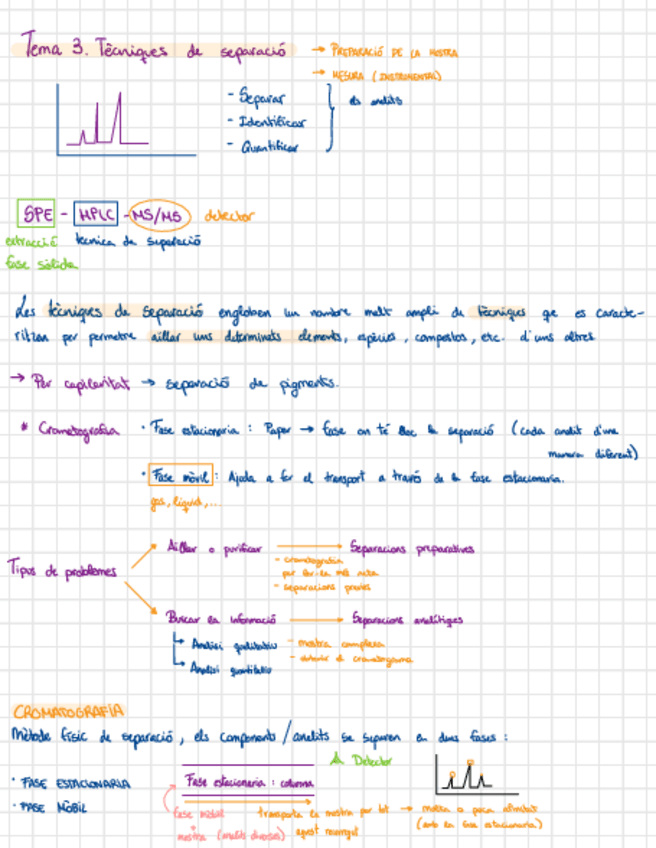 Tema 3. Tècniques de separació → PREPARACIÓ DE LA MOSTRA
→ MESURA (INSTRUMENTAL)
- Separar
- Identificar
- Quantificar
els analits
SPE - HPLC - MS/MS detector
extracció fase sòlida
tècnica de separació
Les tècniques de separació engloben un nombre molt ampli de tècniques que es caracte-
ritzan per permetre aïllar uns determinats elements, espècies, compostos, etc. d'uns altres
→ Per capilaritat → separació de pigments.
* Cromatografia · Fase estacionaria : Paper → fase on té lloc la separació (cada analit d'una
manera diferent)
· Fase mòvil : Ajuda a fer el transport a través de la fase estacionaria.
gas, líquid,...
Tipos de problemes
Aïllar o purificar → Separacions preparatives
- cromatografia
per fer-la més neta
- separacions prèvies
Buscar la informació → Separacions analítiques
Analisi qualitatiu - mostra complexa
Analisi quantitatiu - obtenir el cromatograma
CROMATOGRAFIA
Mètode físic de separació, els components/analits se separen en dues fases :
· FASE ESTACIONARIA
· FASE MÒBIL
Fase estacionaria : columna
Detector
fase mòbil
mostra (analits diversos)
transporta la mostra per tot
aquest recorregut
→ molta o poca afinitat
(amb la fase estacionaria)